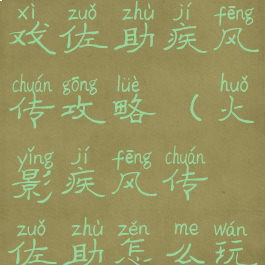 xì zuǒ zhù jí fēng
戏佐助疾风
chuán gōng lüè huǒ
传攻略（火
yǐng jí fēng chuán
影疾风传
zuǒ zhù zěn me wán
佐助怎么玩